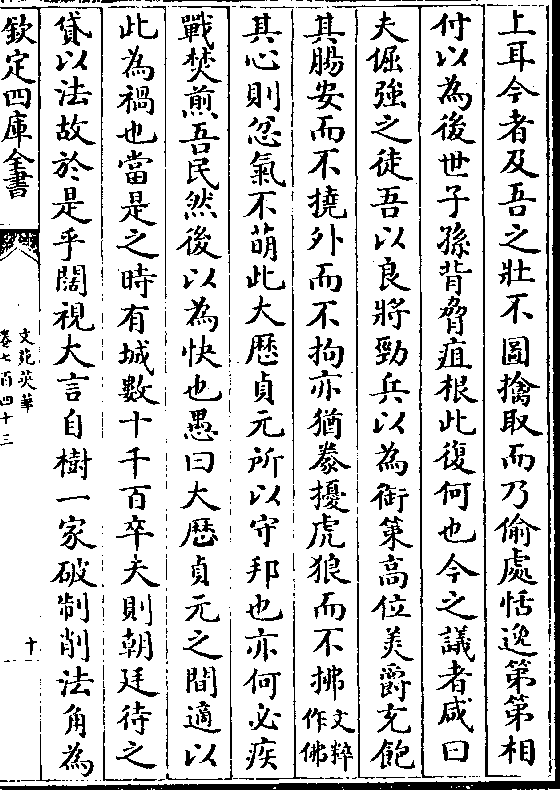 上耳今者及吾之壯不圖擒取而乃偷處恬逸第第相
付以為後世子孫背脅疽根此復何也今之議者咸曰
夫倔強之徒吾以良將勁兵以為銜策高位美爵充飽
其腸安而不撓外而不拘亦猶豢擾虎狼而不拂文粹作佛
其心則忿氣不萌此大歷貞元所以守邦也亦何必疾
戰焚煎吾民然後以為快也愚曰大歷貞元之間適以
此為禍也當是之時有城數十千百卒夫則朝廷待之
貸以法故於是乎闊視大言自樹一家破制削法角為
欽定四庫全書
文苑英華
卷七百四十三
十